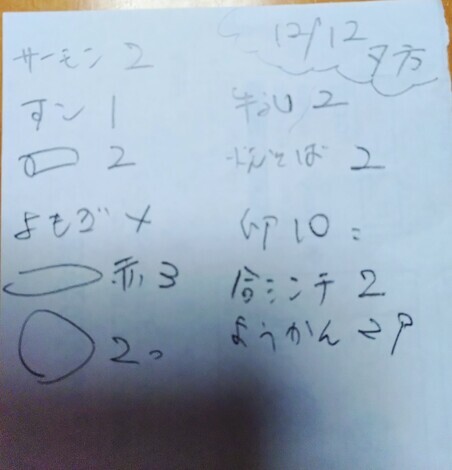 12/12
夕方
サーモン 2
すン 1
2
よもぎ ×
赤 3
2コ
牛乳 2
そば 2
卵 10コ
合ミンチ 2
ようかん 2P